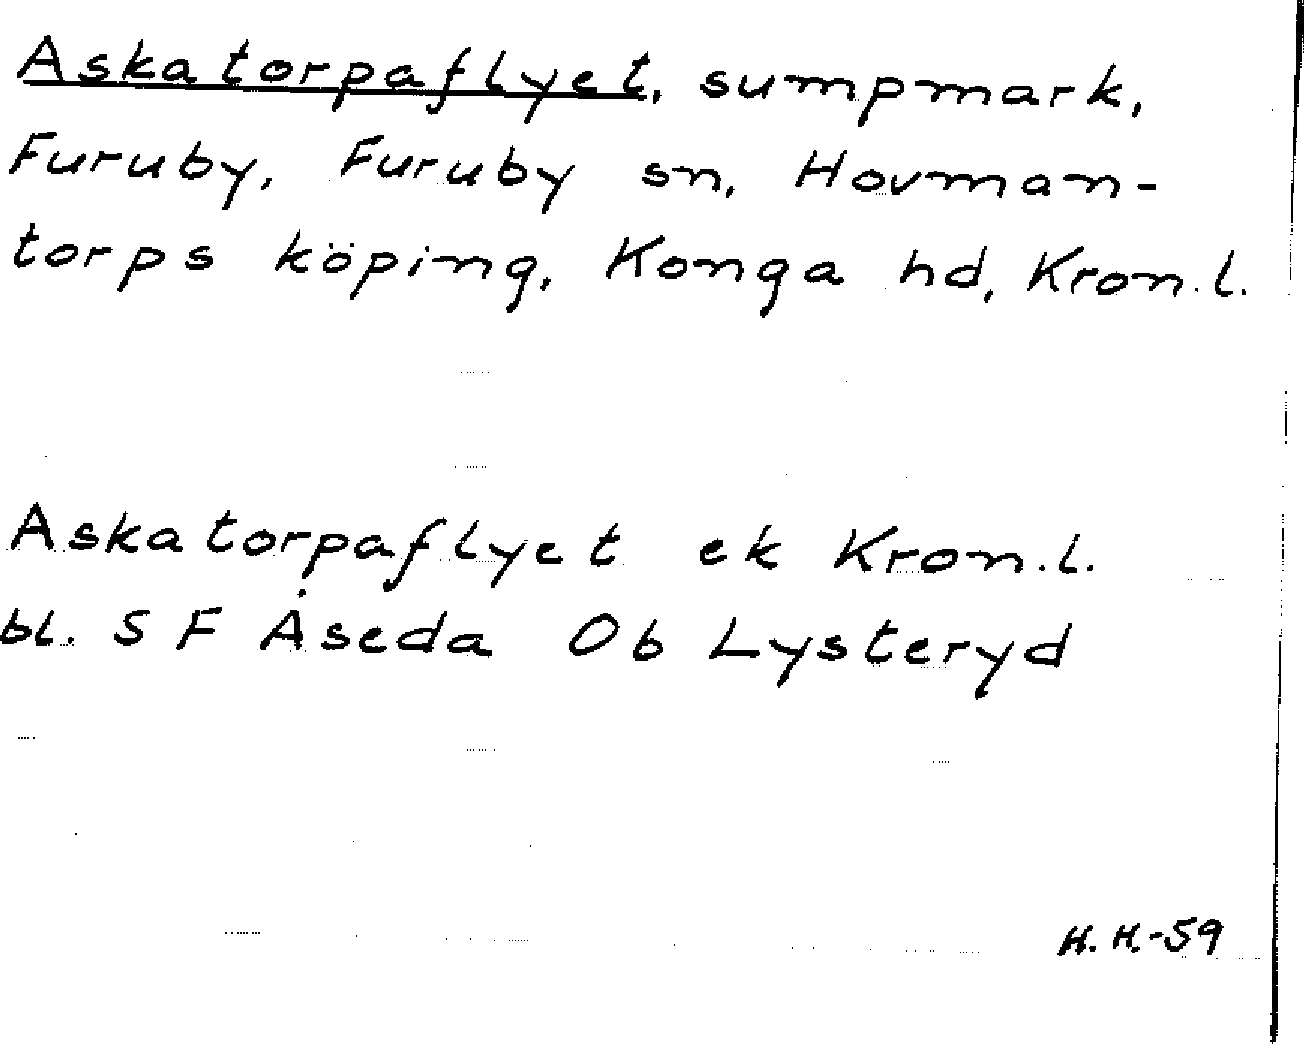 Askatorpaflyet, sumpmark,
Furuby, Furuby sn, Hovman-
torps köping, Konga hd, Kron.l.
Askatorpaflyet ek Kron.l.
bl. 5 F Åseda Ob Lysteryd
H.H.-59